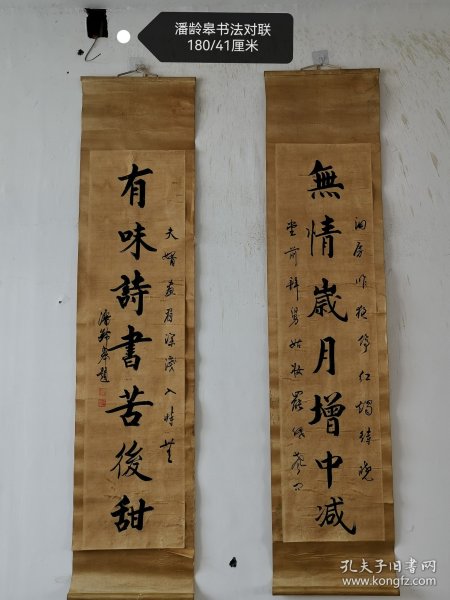 潘龄皋书法对联
180/41厘米
無情歲月增中減
洞房昨夜停紅燭待曉
堂前拜舅姑妝罷低聲问
有味詩書苦後甜
夫婿畫眉深淺入時無
潘齡皋題
孔夫子旧书网
www.kongfz.com